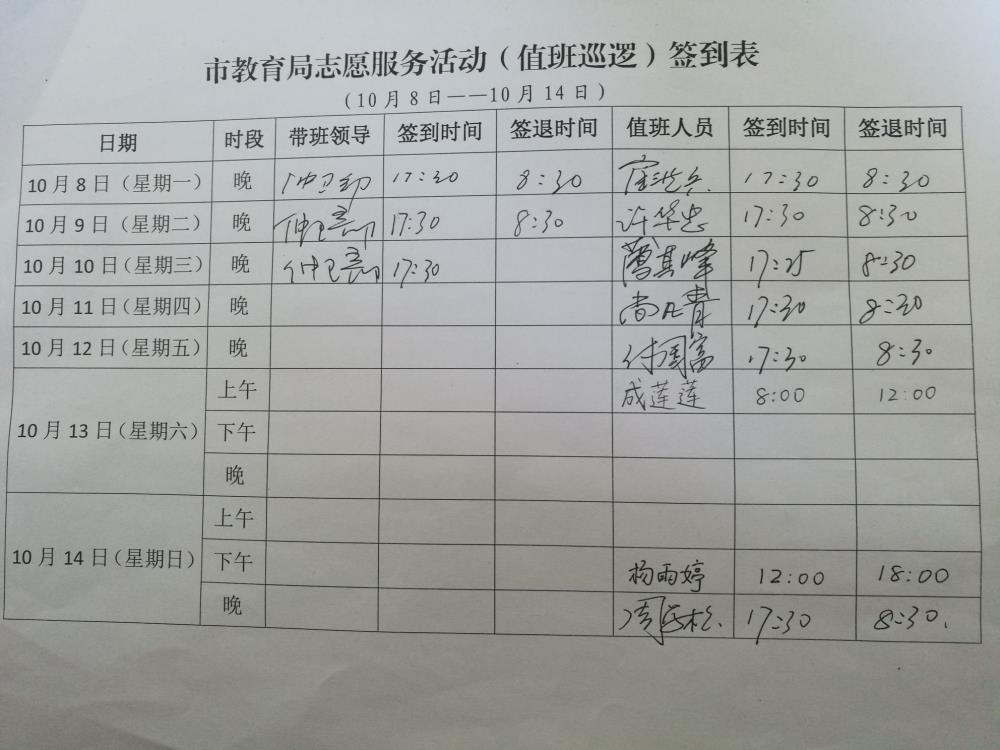 市教育局志愿服务活动（值班巡逻）签到表
（10月8日——10月14日）
日期 时段 带班领导 签到时间 签退时间 值班人员 签到时间 签退时间
10月8日（星期一） 晚 17:30 8:30 17:30 8:30
10月9日（星期二） 晚 17:30 8:30 许华忠 17:30 8:30
10月10日（星期三） 晚 17:30 曹其峰 17:25 8:30
10月11日（星期四） 晚 17:30 8:30
10月12日（星期五） 晚 付国富 17:30 8:30
10月13日（星期六） 上午 成莲莲 8:00 12:00
下午
晚
10月14日（星期日） 上午
下午 杨雨婷 12:00 18:00
晚 17:30 8:30.